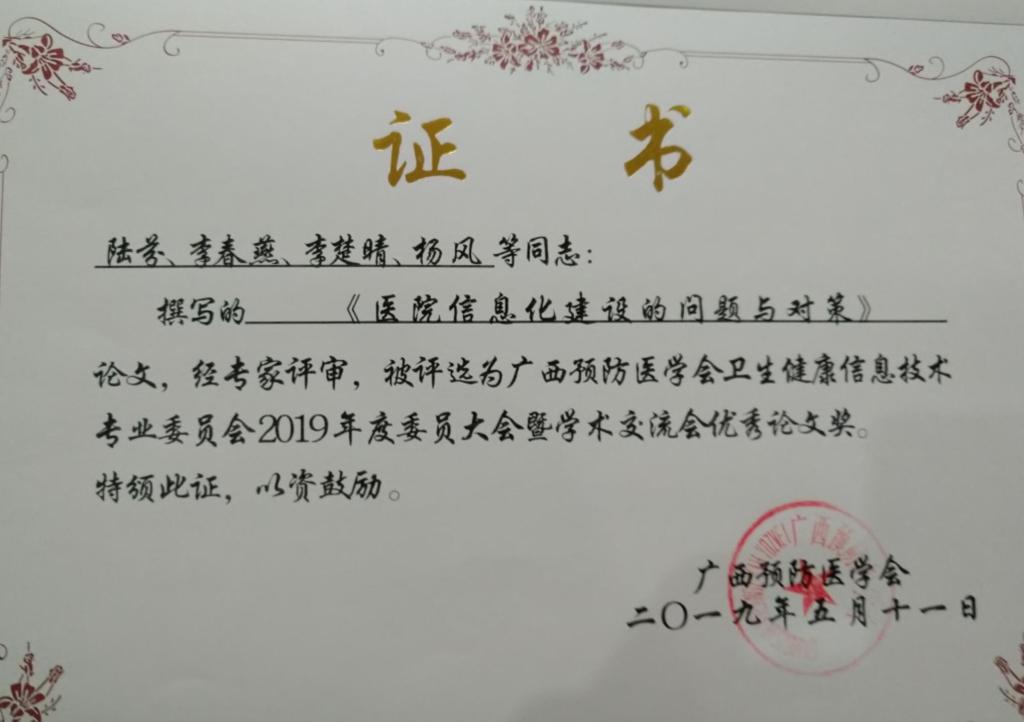 证书
陆芬、李春燕、李楚晴、杨风等同志：
撰写的《医院信息化建设的问题与对策》
论文，经专家评审，被评选为广西预防医学会卫生健康信息技术
专业委员会2019年度委员大会暨学术交流会优秀论文奖。
特颁此证，以资鼓励。
广西预防医学会
二〇一九年五月十一日